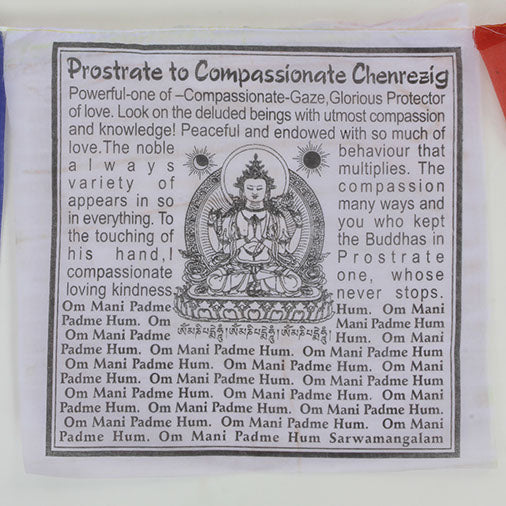 Prostrate to Compassionate Chenrezig
Powerful-one of –Compassionate-Gaze,Glorious Protector
of love. Look on the deluded beings with utmost compassion
and knowledge! Peaceful and endowed with so much of
love.The noble behaviour that
always multiplies. The
variety of compassion
appears in so many ways and
in everything. To you who kept
the touching of the Buddhas in
his hand,I Prostrate
compassionate one, whose
loving kindness never stops.
Om Mani Padme Hum. Om Mani
Padme Hum. Om Mani Padme Hum
Om Mani Padme ཨོཾ་མ་ཎི་པདྨེ་ཧཱུྃ། ཨོཾ་མ་ཎི་པདྨེ་ཧཱུྃ། ཨོཾ་མ་ཎི་པདྨེ་ཧཱུྃ། Hum. Om Mani
Padme Hum. Om Mani Padme Hum. Om Mani Padme Hum.
Om Mani Padme Hum. Om Mani Padme Hum. Om Mani
Padme Hum. Om Mani Padme Hum. Om Mani Padme Hum.
Om Mani Padme Hum. Om Mani Padme Hum. Om Mani
Padme Hum. Om Mani Padme Hum. Om Mani Padme Hum.
Om Mani Padme Hum. Om Mani Padme Hum. Om Mani
Padme Hum. Om Mani Padme Hum Sarwamangalam